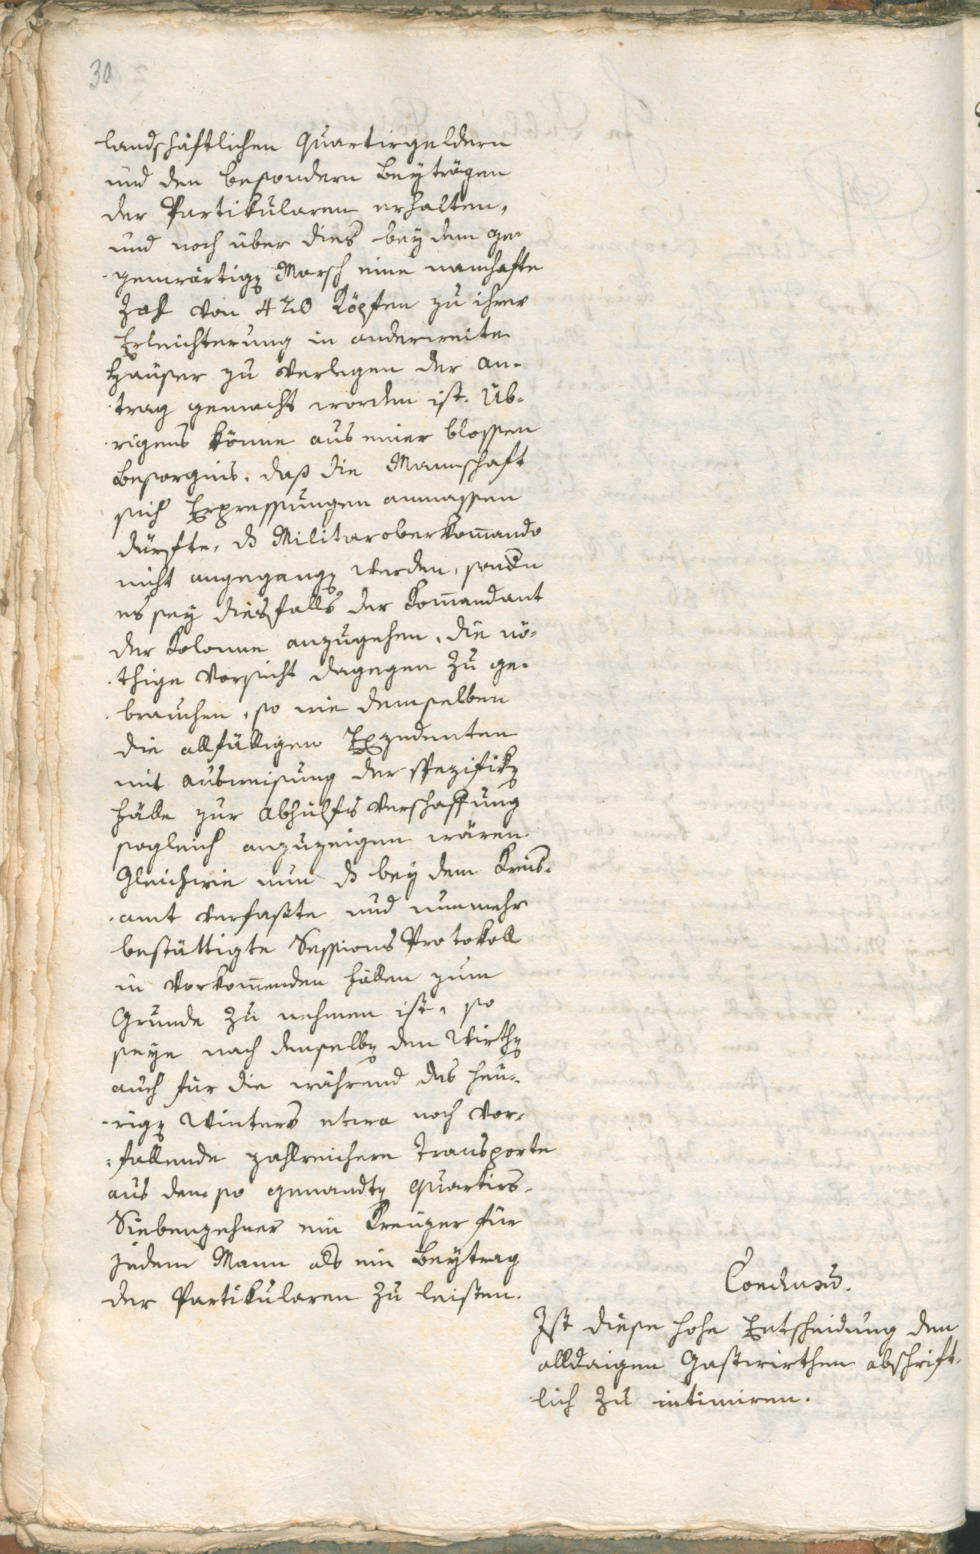 30
landschäftlichen Quartirgeldern
und den besondern Beyträgen
der Partikularen erhalten,
und noch über dies bey dem ge-
genwärtigen Marsch eine namhafte
Zahl von 420 Köpfen zu ihrer
Erleichterung in anderweite
Häuser zu verlegen der An-
trag gemacht worden ist. Üb-
rigens könne aus einer blossen
Besorgnis, daß die Mannschaft
sich Expressungen anmassen
dürfte, das Militaroberkomando
nicht angegangen werden, sondern
es sey diesfalls der Komandant
der Kolonne anzugehen, die nö-
thige Vorsicht dagegen zu ge-
brauchen, so wie demselben
die allfälligen Exzedenten
mit Ausweisung der spezifiken
Fälle zur Abhülfs Verschaffung
sogleich anzuzeigen wären.
Gleichwie nun das bey dem Kreis-
amt verfaßte und nunmehr
bestättigte Sessions Protokoll
in vorkomenden Fällen zum
Grunde zu nehmen ist, so
seye nach demselben den Wirthen
auch für die während des heu-
rigen Winters etwa noch vor-
fallende zahlreichere Transporte
aus dem so genandten Quartirs-
Siebenzehner ein Kreuzer für
jedem Mann als ein Beytrag
der Partikularen zu leisten.
Conclusum.
Ist diese hohe Entscheidung den
alldaigen Gastwirthen abschrift-
lich zu intimiren.